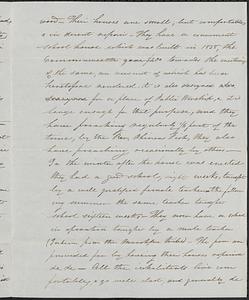 wood — Their houses are small, but comfortable
in decent repair — They have a convenient
School house which was built in 1838, the
Commonwealth gave towards the erecting
of the same, an account of which has been
heretofore rendered. It is also designed also
for a place of Public Worship, & is
large enough for that purpose, and they
have preaching regularly part of the
time, by the Rev. Fish, they also
have preaching occasionally by others —
In the winter after the house was erected
they had a good school, eight weeks, taught
by a well qualified female teacher the follow
ing summer the same teacher taught
school sixteen weeks. They now have a school
in operation taught by a male teacher
(Indian from the Marshpee tribe) The poor are
provided for by having their houses repaired
&c. &c — All the inhabitants live com
fortably & go well clad, and generally do